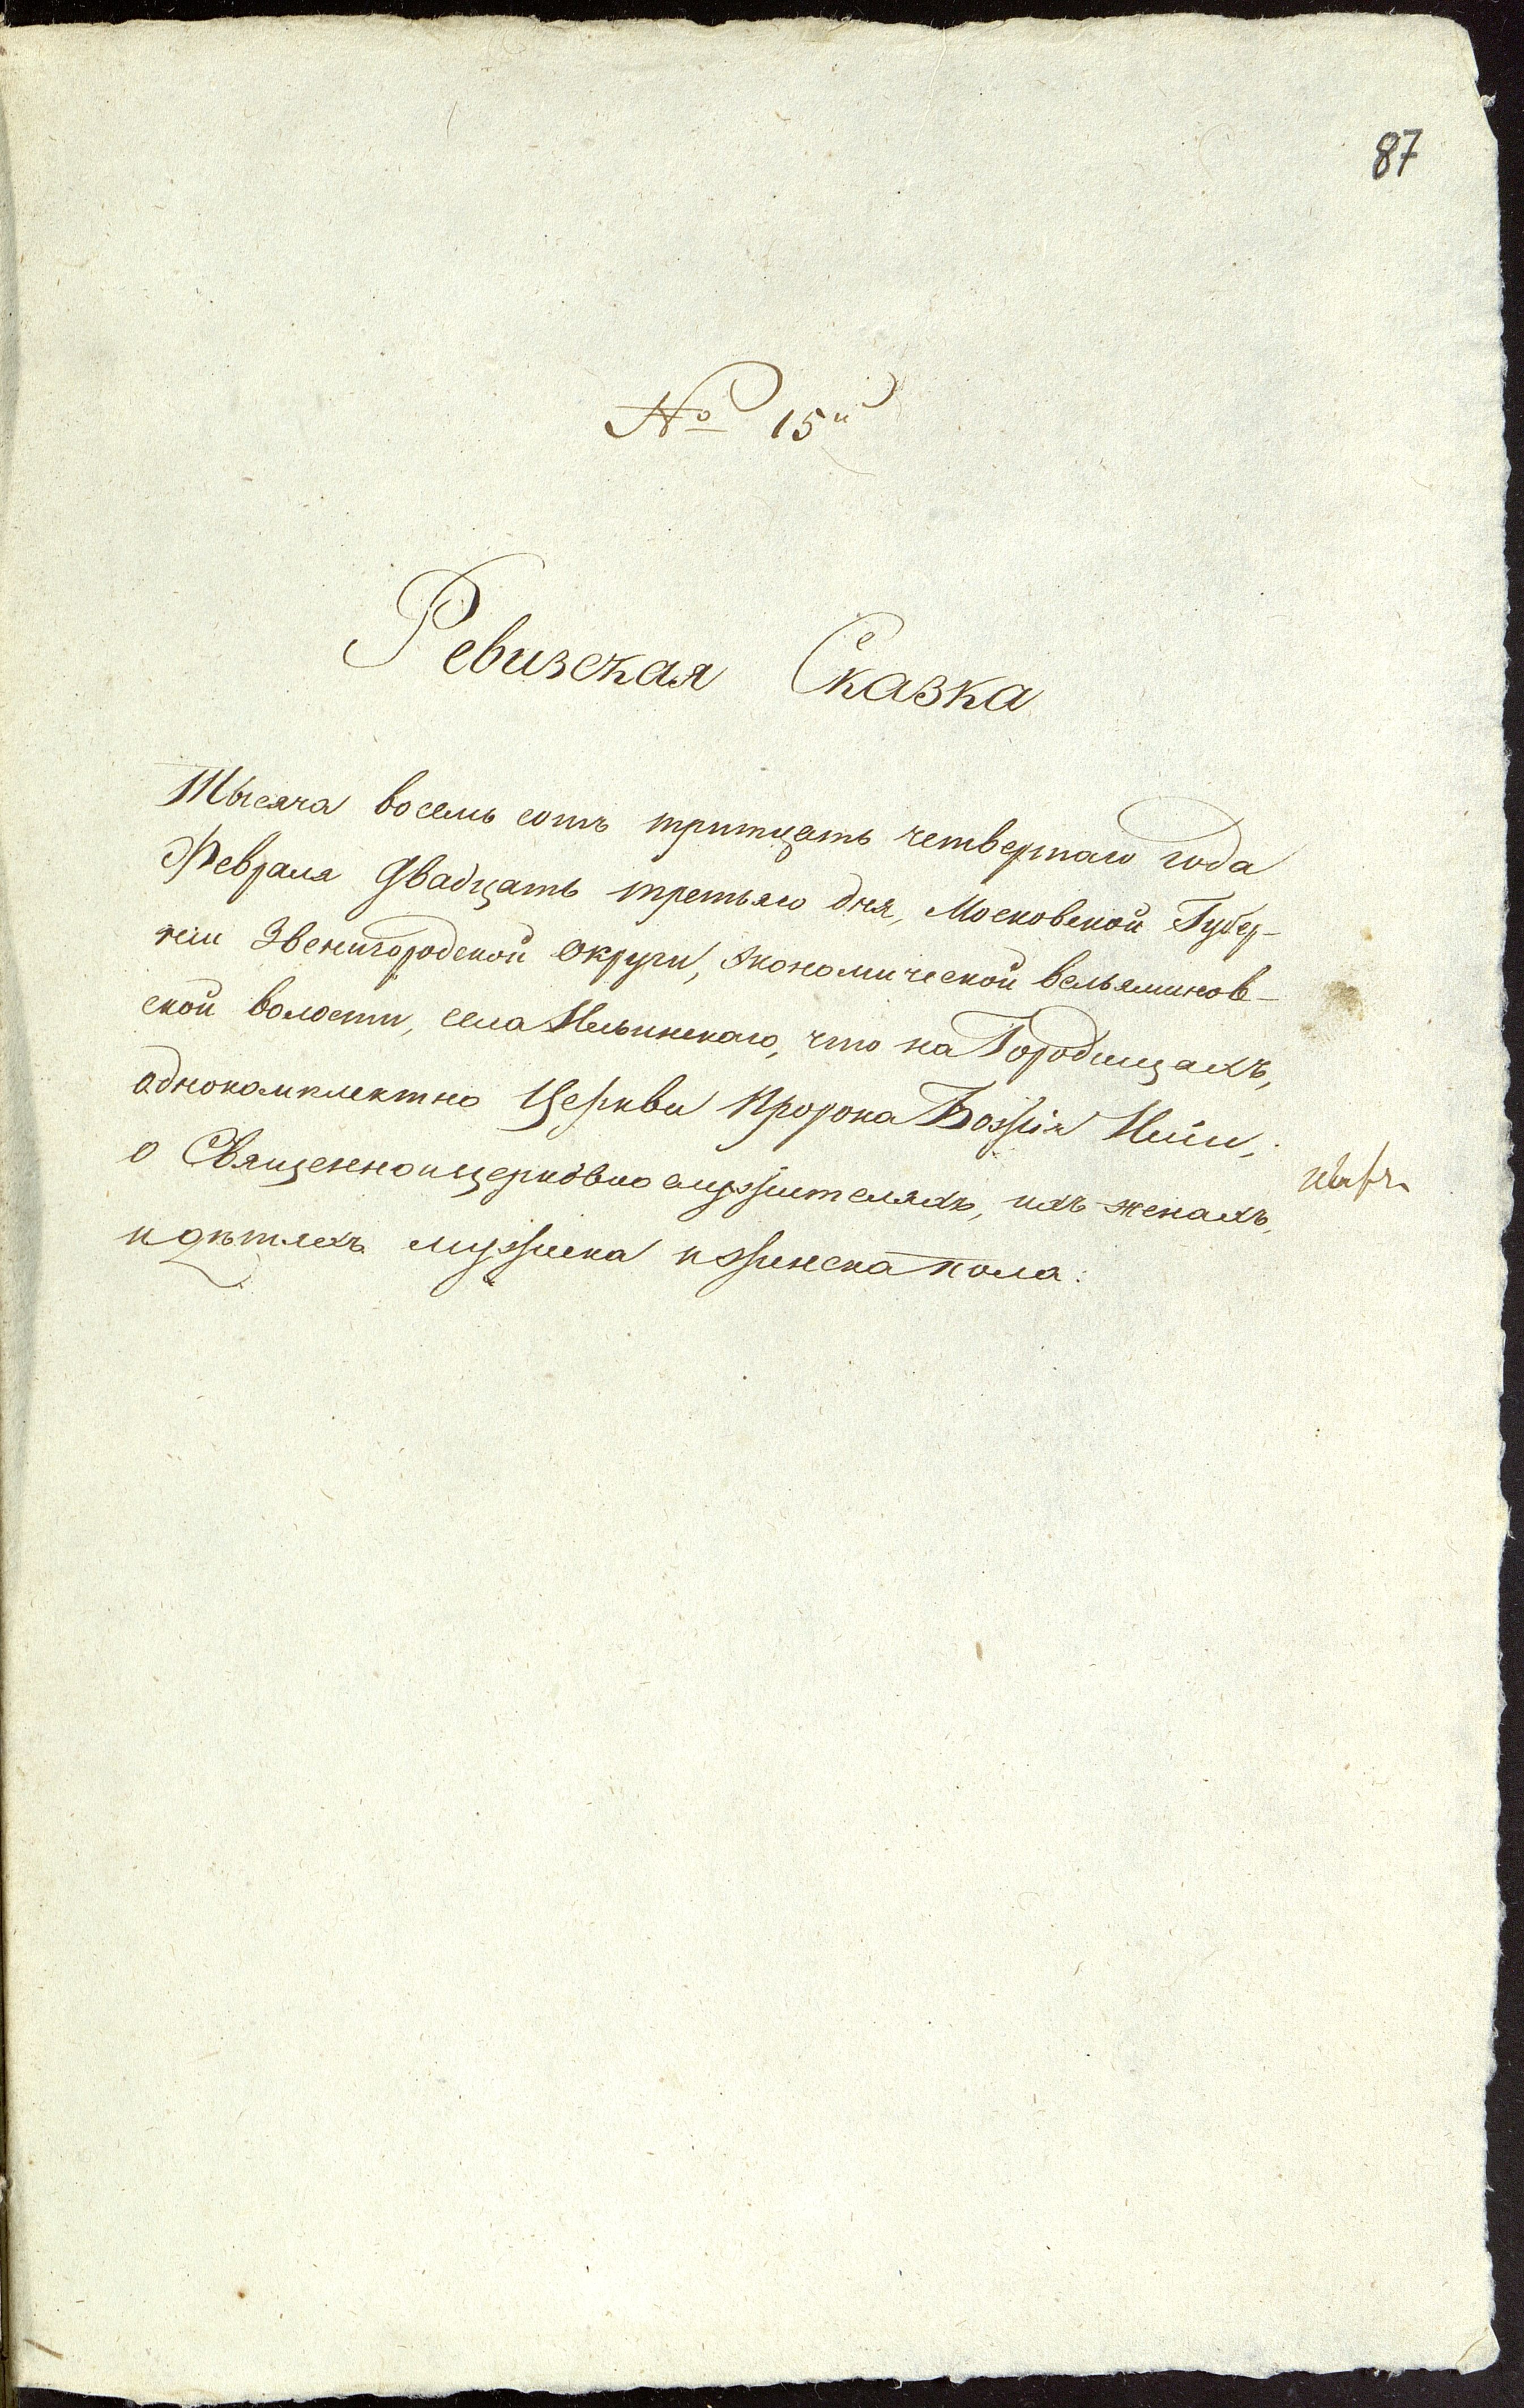 87
№ 15й
Ревизская Сказка
Тысяча восемь сотъ тритцать четвертаго года
Февраля двадцать третьяго дня, Московской Губер-
нiи Звенигородской округи, экономической вельяминов-
ской волости, села Ильинскаго, что на Городищахъ,
однокомплектно Церкви Пророка Божiя Илiи;
о Священноицерковно служителяхъ, ихъ женахъ,
и дѣтяхъ мужеска и женска пола: